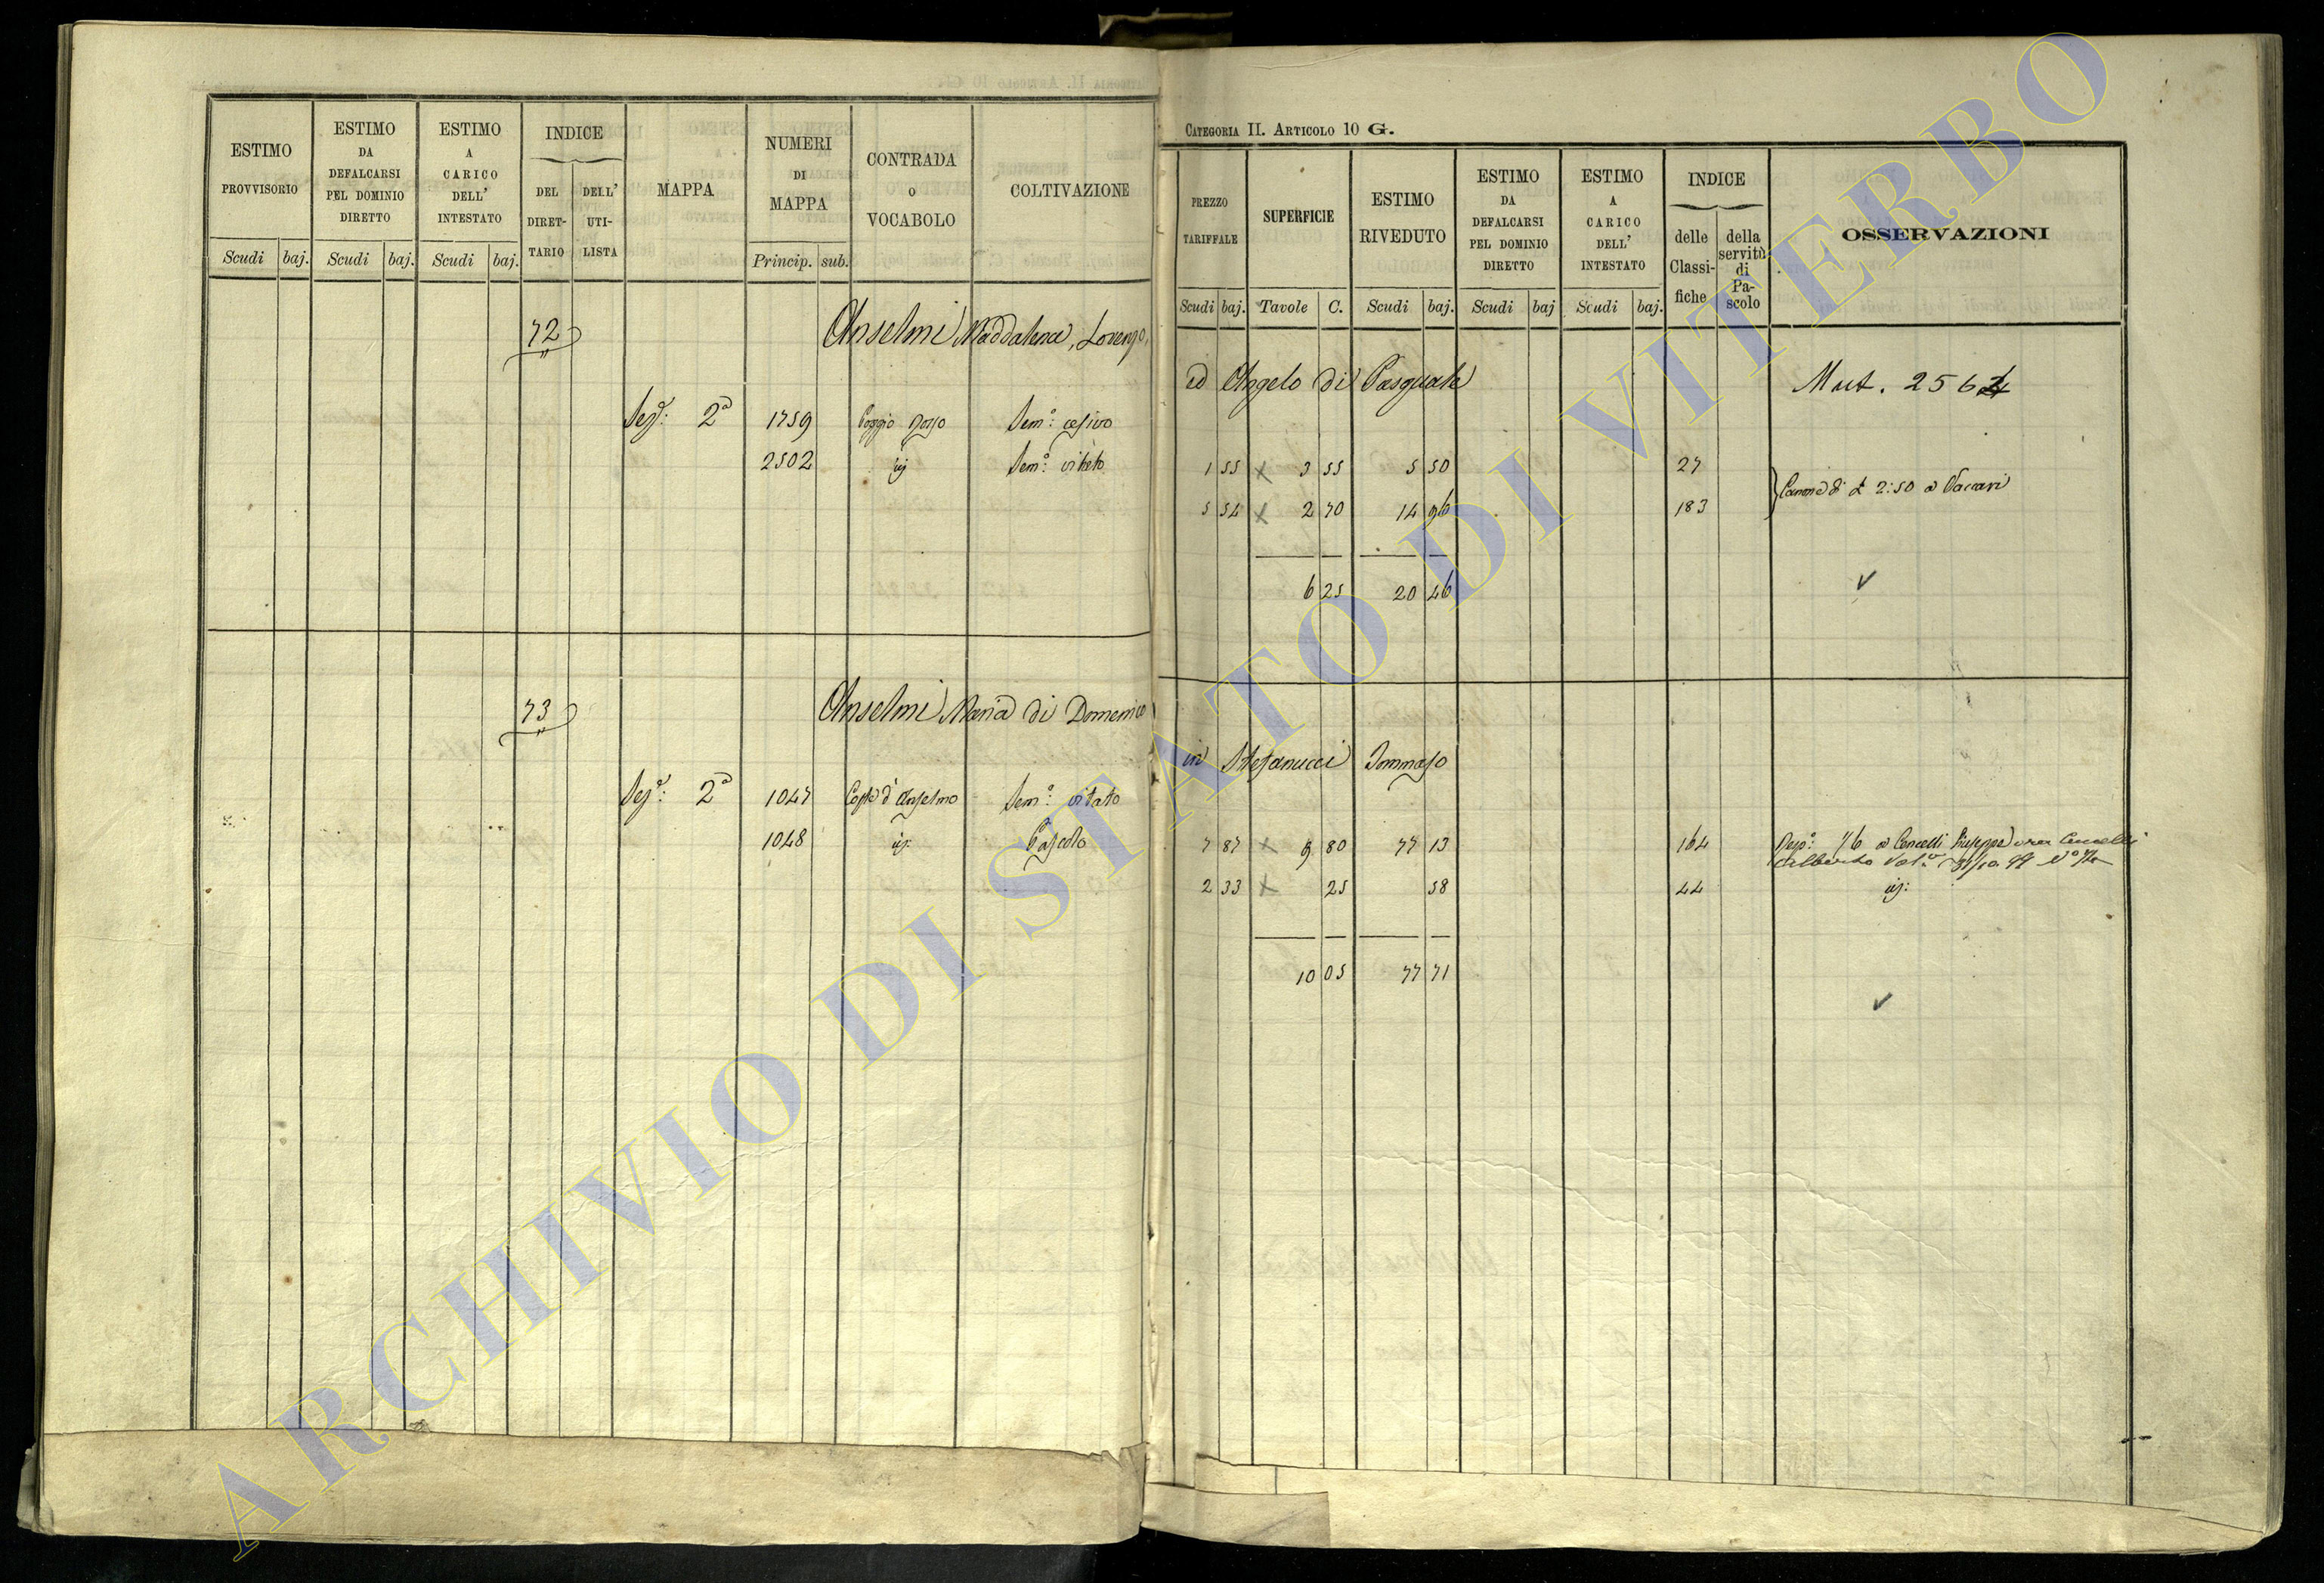 ESTIMO PROVVISORIO
ESTIMO DA DEFALCARSI PEL DOMINIO DIRETTO
ESTIMO A CARICO DELL' INTESTATO
INDICE
DEL DIRET-TARIO
DELL' UTI-LISTA
MAPPA
NUMERI DI MAPPA
CONTRADA O VOCABOLO
COLTIVAZIONE
Scudi baj. Scudi baj. Scudi baj. Princip. sub.
72 Anselmi Maddalena, Lorenzo,
Sez.e: 2a 1759 Poggio Semo:
2502 Semo: vitato
73 Anselmi Maria di Domenico
Sez.e: 2a 1047 Semo: vitato
1048 Pascolo
CATEGORIA II. ARTICOLO 10 G.
PREZZO TARIFFALE
SUPERFICIE
ESTIMO RIVEDUTO
ESTIMO DA DEFALCARSI PEL DOMINIO DIRETTO
ESTIMO A CARICO DELL' INTESTATO
INDICE
delle Classi-fiche
della servitù di Pa-scolo
OSSERVAZIONI
Scudi baj. Tavole C. Scudi baj. Scudi baj Scudi baj.
ed Angelo di Pasquale Mut. 256
1 55 x 3 55 5 50 27
5 54 x 2 70 14 96 183 Canone di £ 2:50 a Vaccari
6 25 20 46
in Stefanucci Tommaso
7 87 x 9 80 77 13 164 76 a Cencelli Giuseppe ora Cencelli
Alberto
2 33 x 25 58 44
10 05 77 71
ARCHIVIO DI STATO DI VITERBO